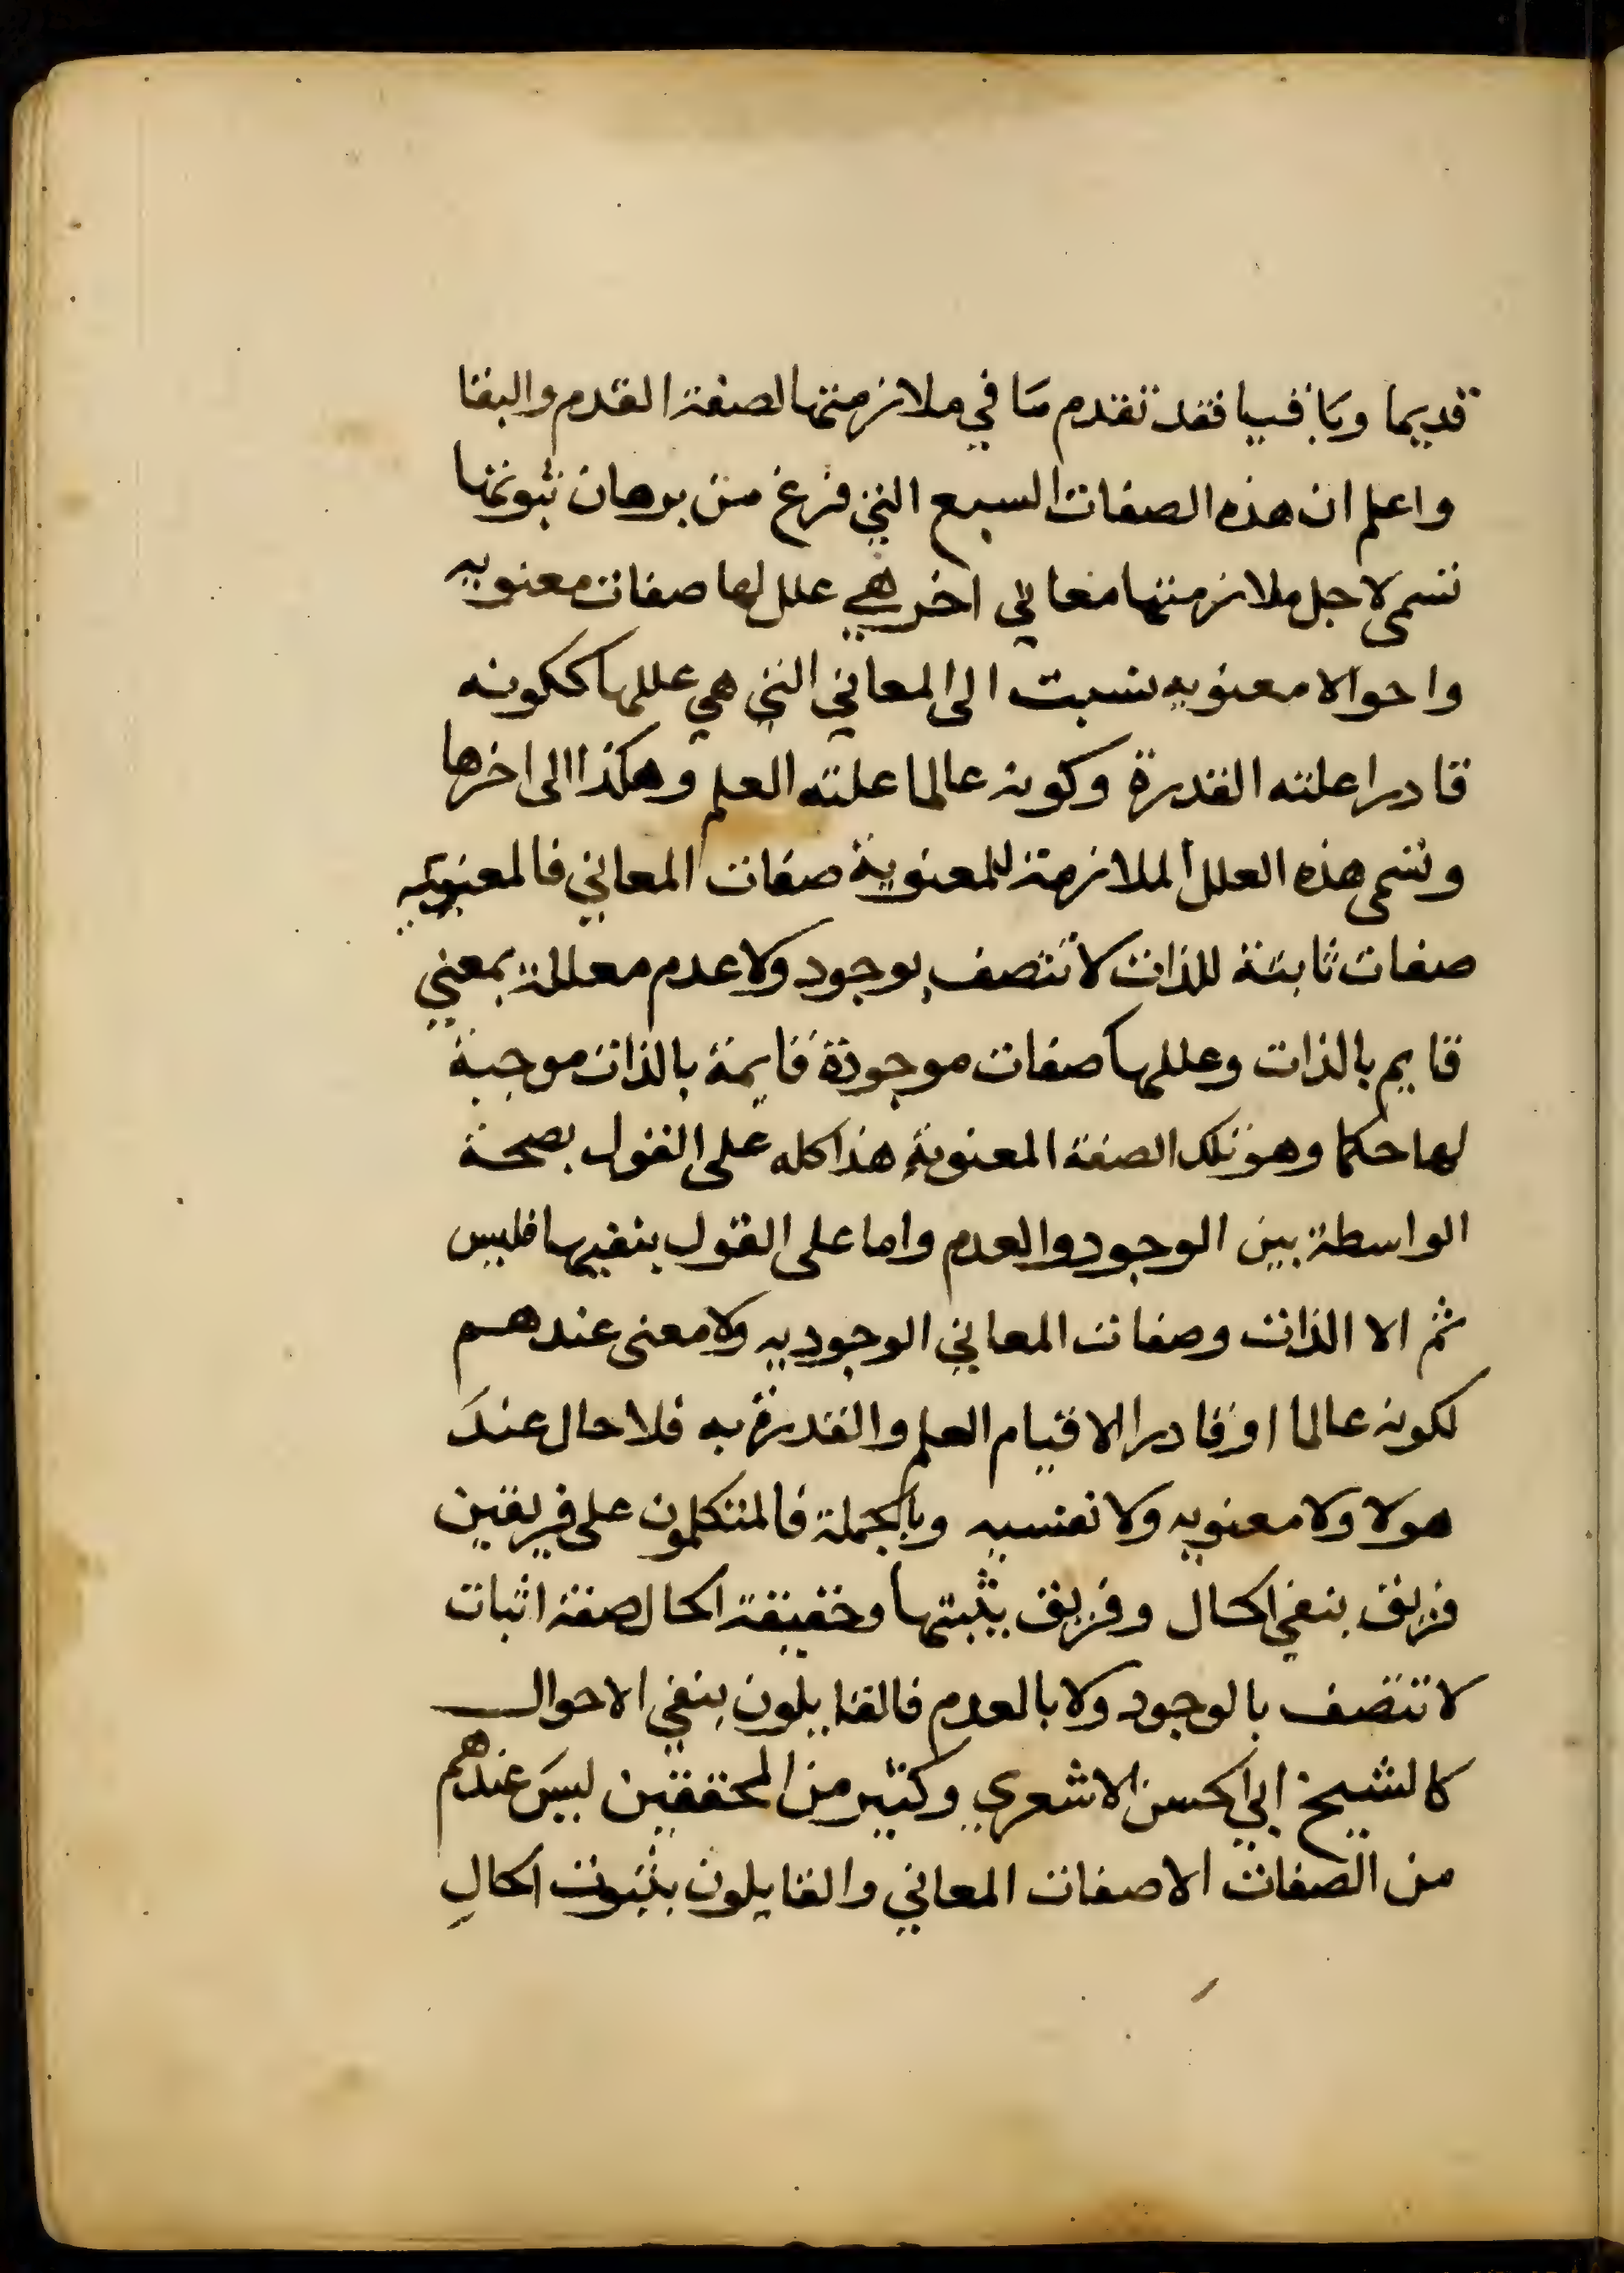 قديما وباقيا فقد تقدم ما في ملازمتها لصفة القدم والبقا
واعلم ان هذه الصفات السبع التي فرغ من برهان ثبوتها
تسمى لاجل ملازمتها معاني اخر هي علل لها صفات معنويه
واحوالا معنويه نسبت الى المعاني التي هي عللها ككونه
قادرا علته القدرة وكونه عالما علته العلم وهكذا الى اخرها
وتسمى هذه العلل الملازمة للمعنوية صفات المعاني فالمعنويه
صفات ثابتة للذات لا تتصف بوجود ولا عدم معللة بمعني
قايم بالذات وعللها صفات موجودة قايمة بالذات موجبة
لها حكما وهو تلك الصفة المعنوية هذا كله على القول بصحة
الواسطة بين الوجود والعدم واما على القول بنفيها فليس
ثم الا الذات وصفات المعاني الوجوديه ولا معنى عندهم
لكونه عالما او قادرا الا قيام العلم والقدرة به فلا حال عند
هولا ولا معنويه ولا نفسيه وبالجملة فالمتكلمون على فريقين
فريق بنفي الحال وفريق يثبتها وحقيقة الحال صفة اثبات
لا تتصف بالوجود ولا بالعدم فالقايلون بنفي الاحوال
كالشيخ ابي الحسن الاشعري وكثير من المحققين ليس عندهم
من الصفات الا صفات المعاني والقايلون بثبوت الحال